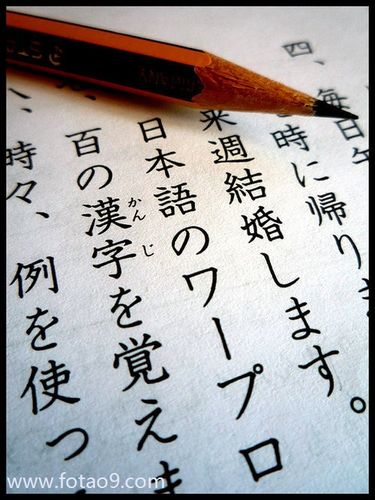 四、毎日午
時に帰りま
来週結婚します。
日本語のワープロ
、百の漢字を覚えま
かんじ
、時々、例を使っ
www.fotao9.com